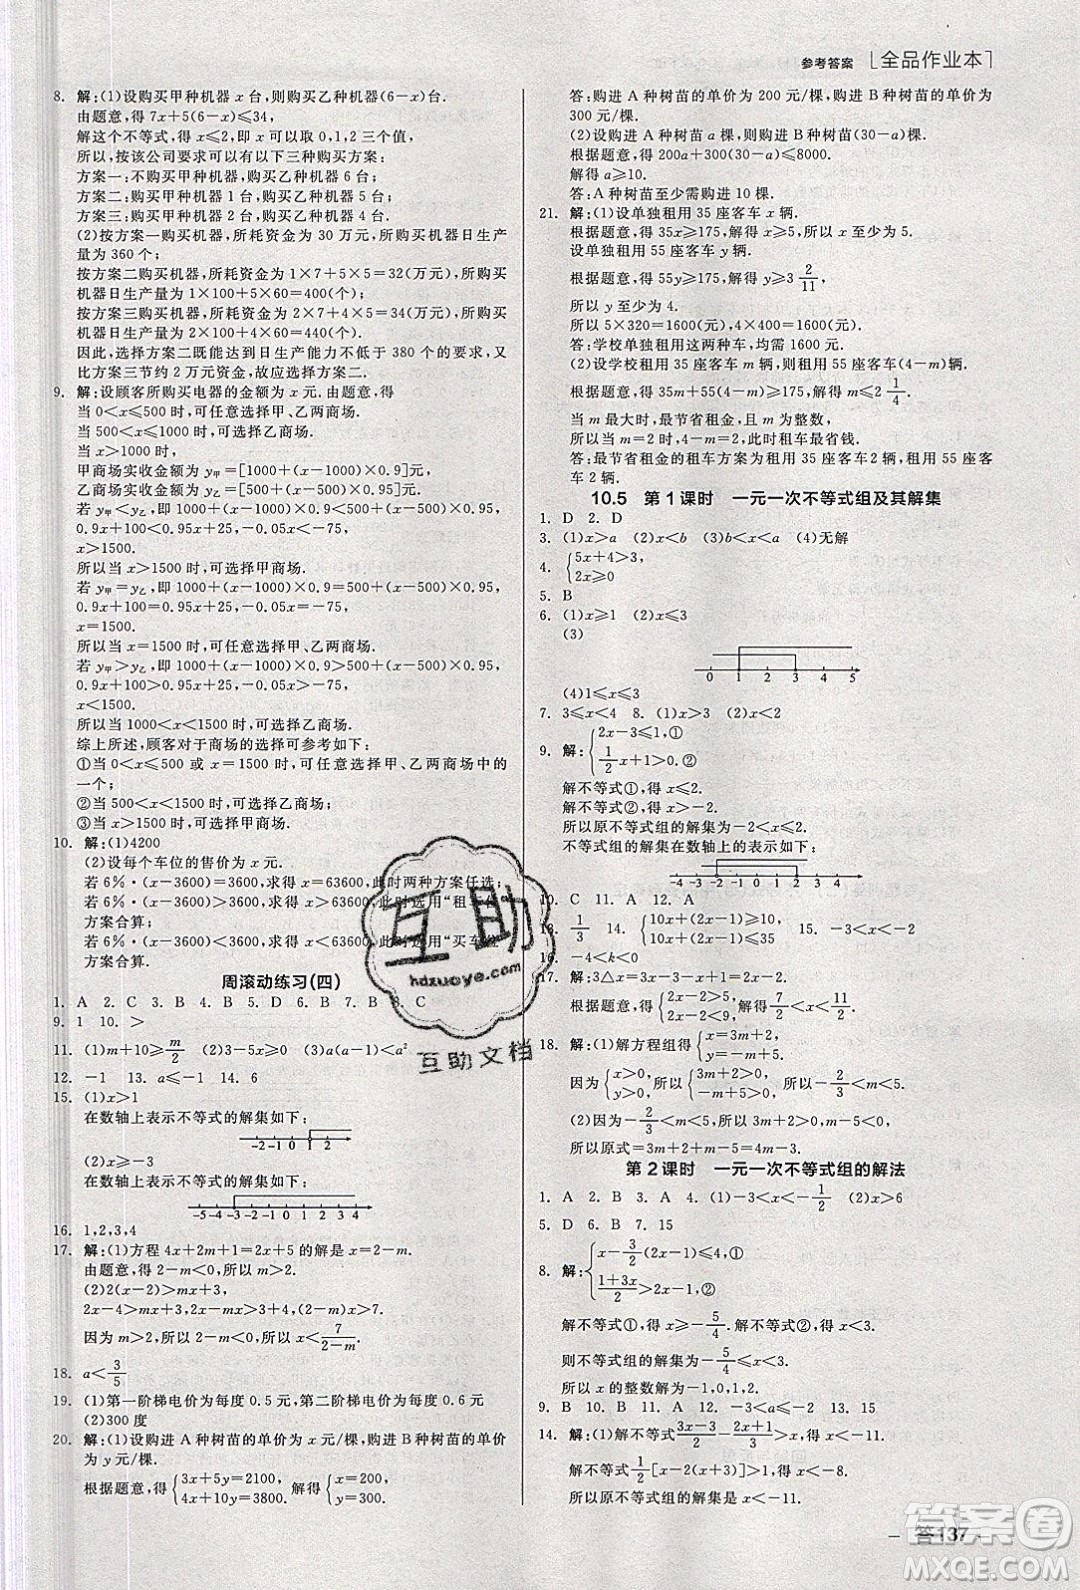 参考答案 [全品作业本]
8. 解:(1)设购买甲种机器 x 台,则购买乙种机器(6-x)台.
由题意,得 7x+5(6-x)≤34,
解这个不等式,得 x≤2,即 x 可以取 0,1,2 三个值.
所以,按该公司要求可以有以下三种购买方案:
方案一:不购买甲种机器,购买乙种机器 6 台;
方案二:购买甲种机器 1 台,购买乙种机器 5 台;
方案三:购买甲种机器 2 台,购买乙种机器 4 台.
(2)按方案一购买机器,所耗资金为 30 万元,所购买机器日生产
量为 360 个;
按方案二购买机器,所耗资金为 1×7+5×5=32(万元),所购买
机器日生产量为 1×100+5×60=400(个);
按方案三购买机器,所耗资金为 2×7+4×5=34(万元),所购买
机器日生产量为 2×100+4×60=440(个).
因此,选择方案二既能达到日生产能力不低于 380 个的要求,又
比方案三节约 2 万元资金,故应选择方案二.
9. 解:设顾客所购买电器的金额为 x 元.由题意,得
当 0<x≤500 时,可任意选择甲、乙两商场.
当 500<x≤1000 时,可选择乙商场.
当 x>1000 时,
甲商场实收金额为 y甲=[1000+(x-1000)×0.9]元,
乙商场实收金额为 y乙=[500+(x-500)×0.95]元.
若 y甲<y乙,则 1000+(x-1000)×0.9<500+(x-500)×0.95,
0.9x+100<0.95x+25,
x>1500.
所以当 x>1500 时,可选择甲商场.
若 y甲=y乙,则 1000+(x-1000)×0.9=500+(x-500)×0.95,
0.9x+100=0.95x+25,-0.05x=-75,
x=1500.
所以当 x=1500 时,可任意选择甲、乙两商场.
若 y甲>y乙,则 1000+(x-1000)×0.9>500+(x-500)×0.95,
0.9x+100>0.95x+25,-0.05x>-75,
x<1500.
所以当 1000<x<1500 时,可选择乙商场.
综上所述,顾客对于商场的选择可参考如下:
①当 0<x≤500 或 x=1500 时,可任意选择甲、乙两商场中的
一个;
②当 500<x<1500 时,可选择乙商场;
③当 x>1500 时,可选择甲商场.
10. 解:(1)4200
(2)设每个车位的售价为 x 元.
若 6%·(x-3600)=3600,求得 x=63600,此时两种方案任选;
若 6%·(x-3600)>3600,求得 x>63600,此时选用“租车位”
方案合算;
若 6%·(x-3600)<3600,求得 x<63600,此时选用“买车位”
方案合算.
周滚动练习(四)
1. A 2. C 3. B 4. B 5. D 6. B 7. B 8. C
9. 1 10. >
11. (1)m+10≥m/2 (2)3-5x<0 (3)a(a-1)<a²
12. -1 13. a≤-1 14. 6
15. (1)x>1
在数轴上表示不等式的解集如下:
-2 -1 0 1 2 3 4
(2)x≥-3
在数轴上表示不等式的解集如下:
-5 -4 -3 -2 -1 0 1 2 3 4
16. 1,2,3,4
17. 解:(1)方程 4x+2m+1=2x+5 的解是 x=2-m.
由题意,得 2-m<0,所以 m>2.
(2)2(x-2)>mx+3,
2x-4>mx+3,(2-m)x>7.
因为 m>2,所以 2-m<0,所以 x<7/(2-m).
18. a<3/5
19. (1)第一阶梯电价为每度 0.5 元,第二阶梯电价为每度 0.6 元
(2)300 度
20. 解:(1)设购进 A 种树苗的单价为 x 元/棵,购进 B 种树苗的单价
为 y 元/棵.
根据题意,得 {3x+5y=2100, 4x+10y=3800, 解得 {x=200, y=300.
答:购进 A 种树苗的单价为 200 元/棵,购进 B 种树苗的单价为
300 元/棵.
(2)设购进 A 种树苗 a 棵,则购进 B 种树苗(30-a)棵.
根据题意,得 200a+300(30-a)≤8000.
解得 a≥10.
答:A 种树苗至少需购进 10 棵.
21. 解:(1)设单独租用 35 座客车 x 辆.
根据题意,得 35x≥175,解得 x≥5.所以 x 至少为 5.
设单独租用 55 座客车 y 辆.
根据题意,得 55y≥175,解得 y≥3 2/11,
所以 y 至少为 4.
所以 5×320=1600(元),4×400=1600(元).
答:学校单独租用这两种车,各需 1600 元.
(2)设学校租用 35 座客车 m 辆,则租用 55 座客车(4-m)辆.
根据题意,得 35m+55(4-m)≥175,解得 m≤2 1/4.
当 m 最大时,最节省租金,且 m 为整数,
所以当 m=2 时,4-m=2,此时租车最省钱.
答:最节省租金的租车方案为 35 座客车 2 辆,55 座客车 2 辆.
10.5 第 1 课时 一元一次不等式组及其解集
1. D 2. D
3. (1)x>a (2)x<b (3)b<x<a (4)无解
4. {5x+4>3, 2x≥0
5. B
6. (1)x≥1 (2)x≤3
(3)
0 1 2 3 4 5
(4)1≤x≤3
7. 3≤x<4 8. (1)x>2 (2)x<2
9. 解:{2x-3≤1,① 1/2 x+1>0.②
解不等式①,得 x≤2.
解不等式②,得 x>-2.
所以原不等式组的解集为-2<x≤2.
不等式组的解集在数轴上的表示如下:
-4 -3 -2 -1 0 1 2 3 4
10. C 11. A 12. A
13. 1/3 14. {10x+(x+2)≥10, 10x+(x+2)≤35 15. -4<x<-2
16. -4<b<0
17. 解:3△x=3x-3-x+1=2x-2.
根据题意,得 {2x-2>5, 2x-2<9, 解得 7/2<x<11/2.
18. 解:(1)解方程组得 {x=3m+2, y=5-m.
因为 {x>0, y>0, 所以 {3m+2>0, 5-m>0, 所以-2/3<m<5.
(2)因为-2/3<m<5,所以 3m+2>0,m-5<0,
所以原式=3m+2+m-5=4m-3.
第 2 课时 一元一次不等式组的解法
1. A 2. B 3. A 4. (1)-3<x<-1/2 (2)x>6
5. D 6. B 7. 15
8. 解:{x-3/2(2x-1)≤4,① (1+3x)/2>2x-1,②
解不等式①,得 x≥-5/4.解不等式②,得 x<3.
则不等式组的解集为-5/4≤x<3.
所以 x 的整数解为-1,0,1,2.
9. B 10. B 11. x<-12 12. -3<a≤-2 13. 15
14. 解:(1)解不等式(3x-1)/2-(2x+1)/3>x,得 x<-5,
解不等式1/2[x-2(x-3)]>7,得 x<-8.
所以原不等式组的解集是 x<-11.
互助
hdzuoye.com
互助文档
- 答137 -
答案圈
MXQE.COM